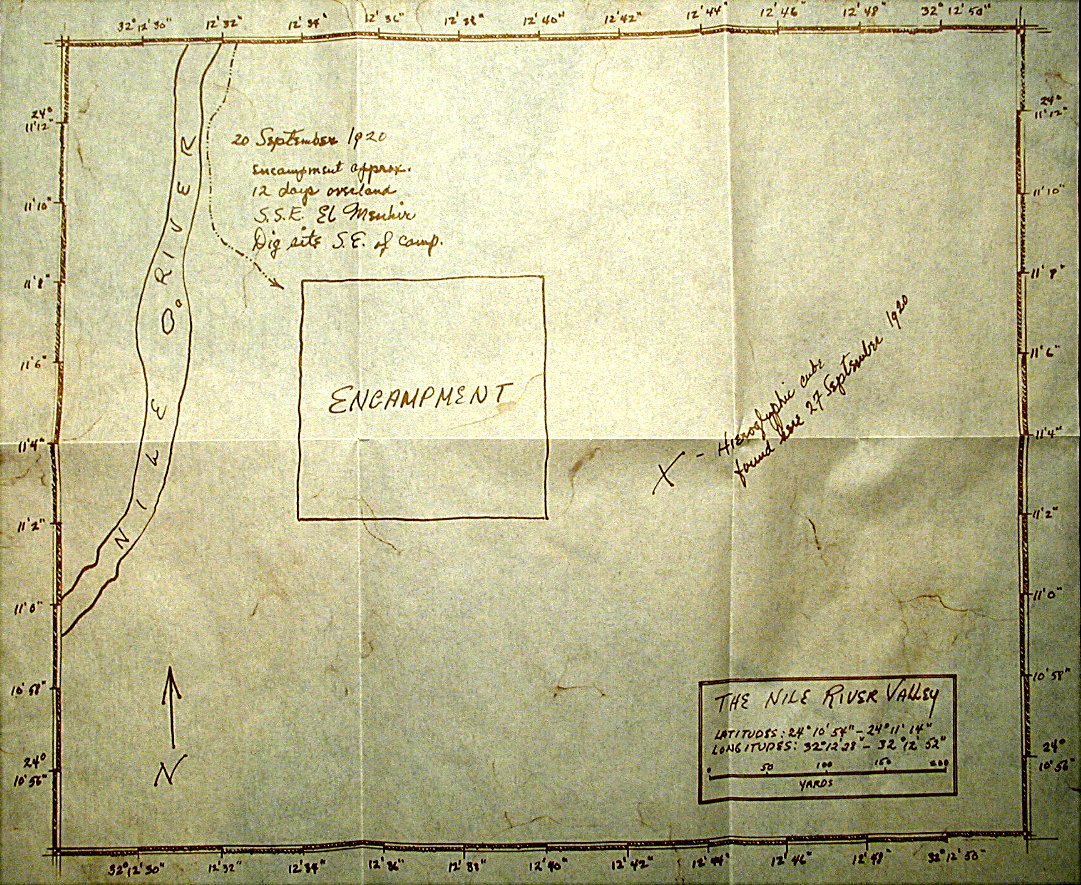 32°12'30" 12'32" 12'34" 12'36" 12'38" 12'40" 12'42" 12'44" 12'46" 12'48" 32°12'50"
24° 11'12"
11'10"
11'8"
11'6"
11'4"
11'2"
11'0"
10'58"
24° 10'56"
NILE RIVER
20 September 1920
encampment approx.
12 days overland
S.S.E. El Menhir
Dig site S.E. of camp.
ENCAMPMENT
X - Hieroglyphic cube
found here 27 September 1920
N
24° 11'12"
11'10"
11'8"
11'6"
11'4"
11'2"
11'0"
10'58"
24° 10'56"
THE NILE RIVER VALLEY
LATITUDES: 24°10'54" - 24°11'14"
LONGITUDES: 32°12'28" - 32°12'52"
0 50 100 150 200
YARDS
32°12'30" 12'32" 12'34" 12'36" 12'38" 12'40" 12'42" 12'44" 12'46" 12'48" 32°12'50"